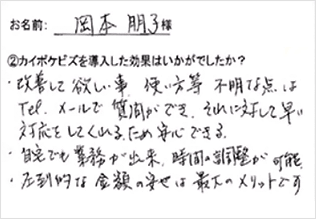 お名前: 岡本 朋子様
②カイポケビズを導入した効果はいかがでしたか?
・改善して欲しい事、使い方等 不明な点は
Tel、メールで 質問ができ、それに対して早い
対応をしてくれるため安心できる。
・自宅でも業務が出来、時間の調整が可能
・圧倒的な金額の安さは最大のメリットです